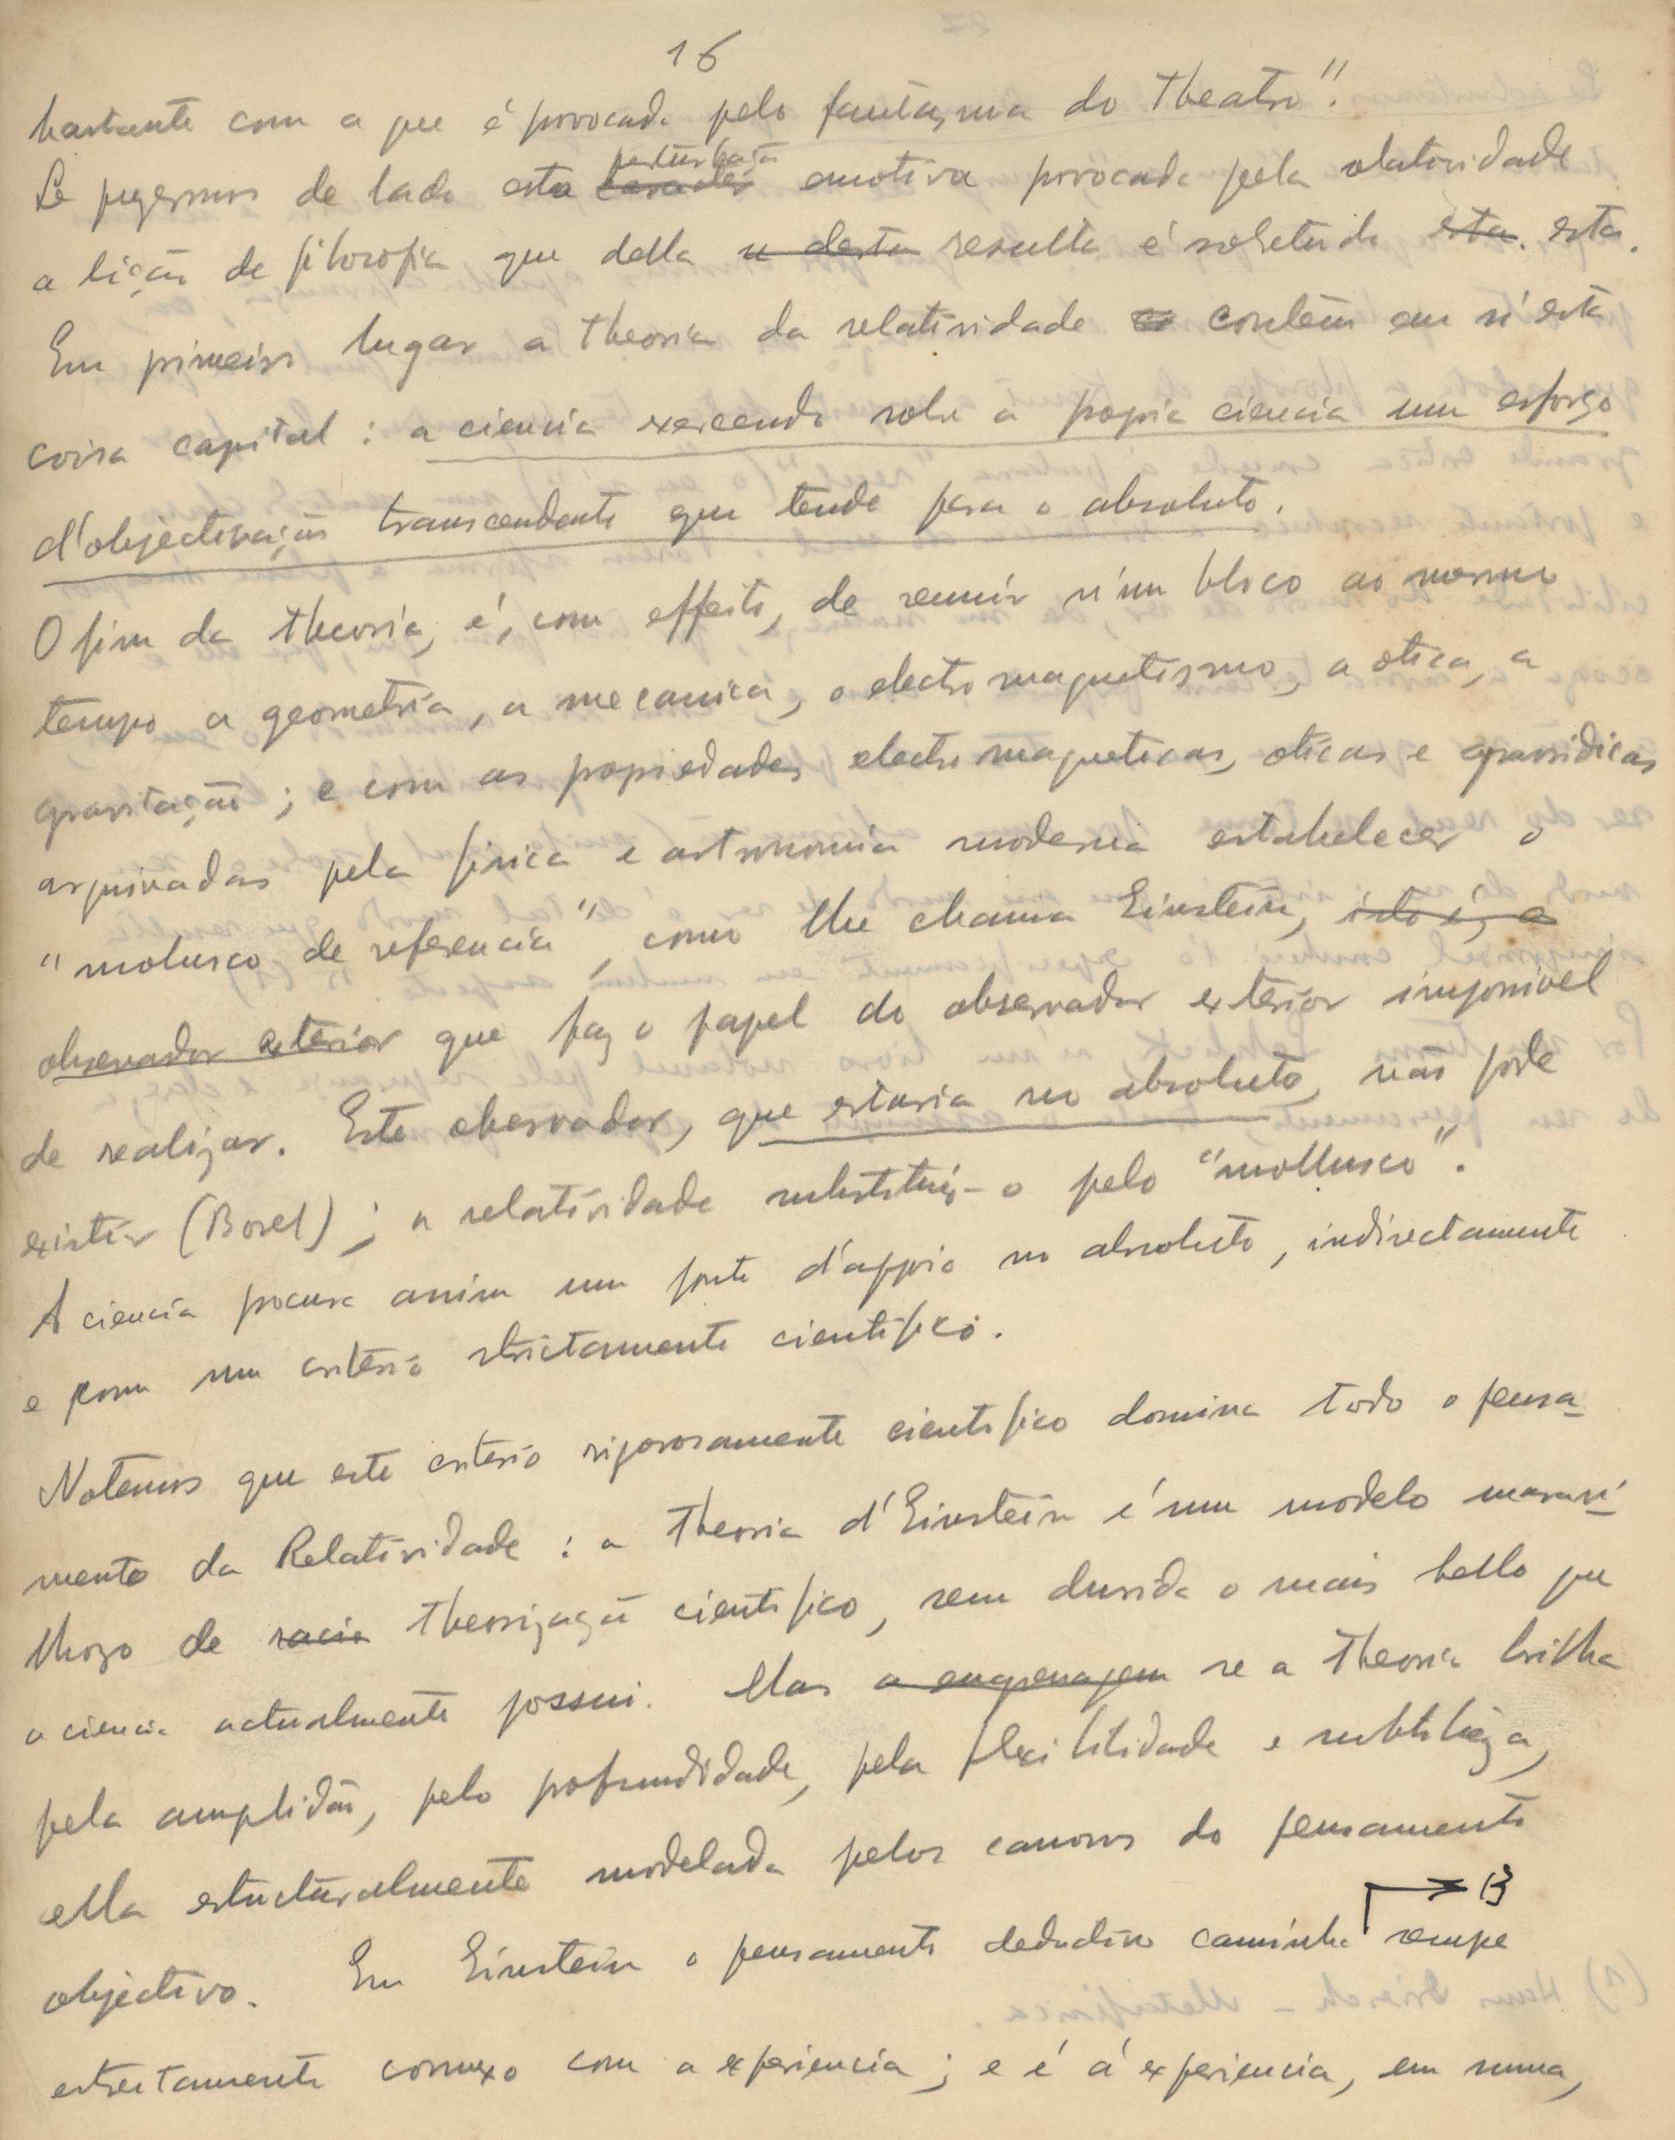 16
bastante com a que é provocada pelo fantasma do theatro".
Se puzermos de lado esta perturbação emotiva provocada pela relatividade
a lição de filosofia que della resulta é sobretudo esta.
Em primeiro lugar a theoria da relatividade contêm em si esta
coisa capital: a ciencia exercendo sobre a propria ciencia um esforço
d'objectivação transcendente que tende para o absoluto.
O fim da theoria, é, com effeito, de reunir n'um bloco ao mesmo
tempo a geometria, a mecanica, o electromagnetismo, a otica, a
gravitação; e com as propriedades electromagneticas, oticas e gravidicas
arquivadas pela fisica e astronomia moderna estabelecer o
"molusco de referencia", como lhe chama Einstein, isto é, o
observador exterior que faz o papel do observador exterior impossivel
de realizar. Este observador, que estaria no absoluto, não pode
existir (Borel); a relatividade substitui-o pelo "mollusco".
A ciencia procura assim um ponto d'appoio no absoluto, indirectamente
e com um criterio strictamente cientifico.
Notemos que este criterio rigorosamente cientifico domina todo o pensa-
mento da Relatividade: a theoria d'Einstein é um modelo maravi-
lhozo de theorização cientifico, sem duvida o mais bello que
a ciencia actualmente possui. Mas a engrenagem se a theoria brilha
pela amplidão, pelo profundidade, pela flexibilidade e subtileza,
ella estructuralmente modelada pelos canones do pensamento
objectivo. Em Einstein o pensamento deductivo caminha → B sempe
estrectamente connexo com a experiencia; e é á experiencia, em suma,